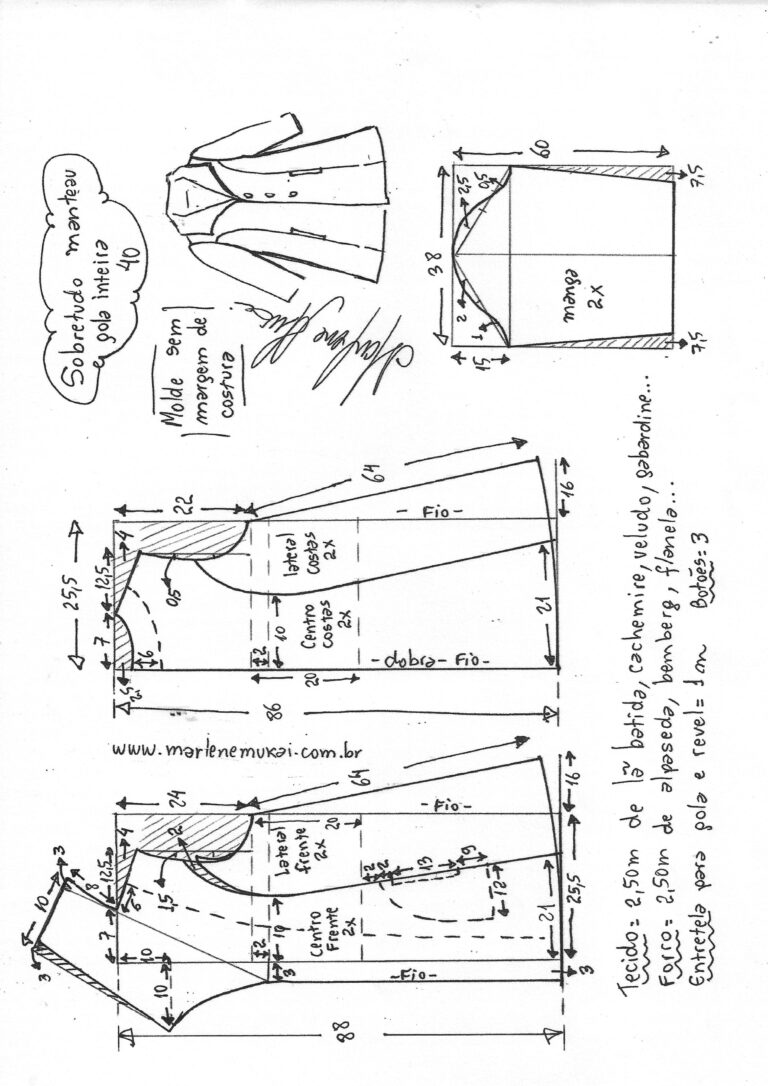 Sobretudo manteau
e gola inteira
40
Molde sem
margem de
costura
38
60
15
2
1
2,5
0,5
manga
2x
7,5
7,5
25,5
7
12,5
4
22
64
2,5
6
0,5
lateral
costas
2x
Centro
costas
2x
2
10
20
-Fio-
-dobra-Fio-
21
16
86
www.marlenemukai.com.br
3
10
3
8
7
12,5
4
24
64
6
1,5
2
10
10
lateral
frente
2x
Centro
Frente
2x
2
10
3
20
2
2
13
12
-Fio-
-Fio-
21
25,5
16
3
88
Tecido= 2,50m de lã batida, cachemire, veludo, gabardine...
Forro= 2,50m de alpaseda, bemberg, flanela...
Entretela para gola e revel= 1m Botões= 3